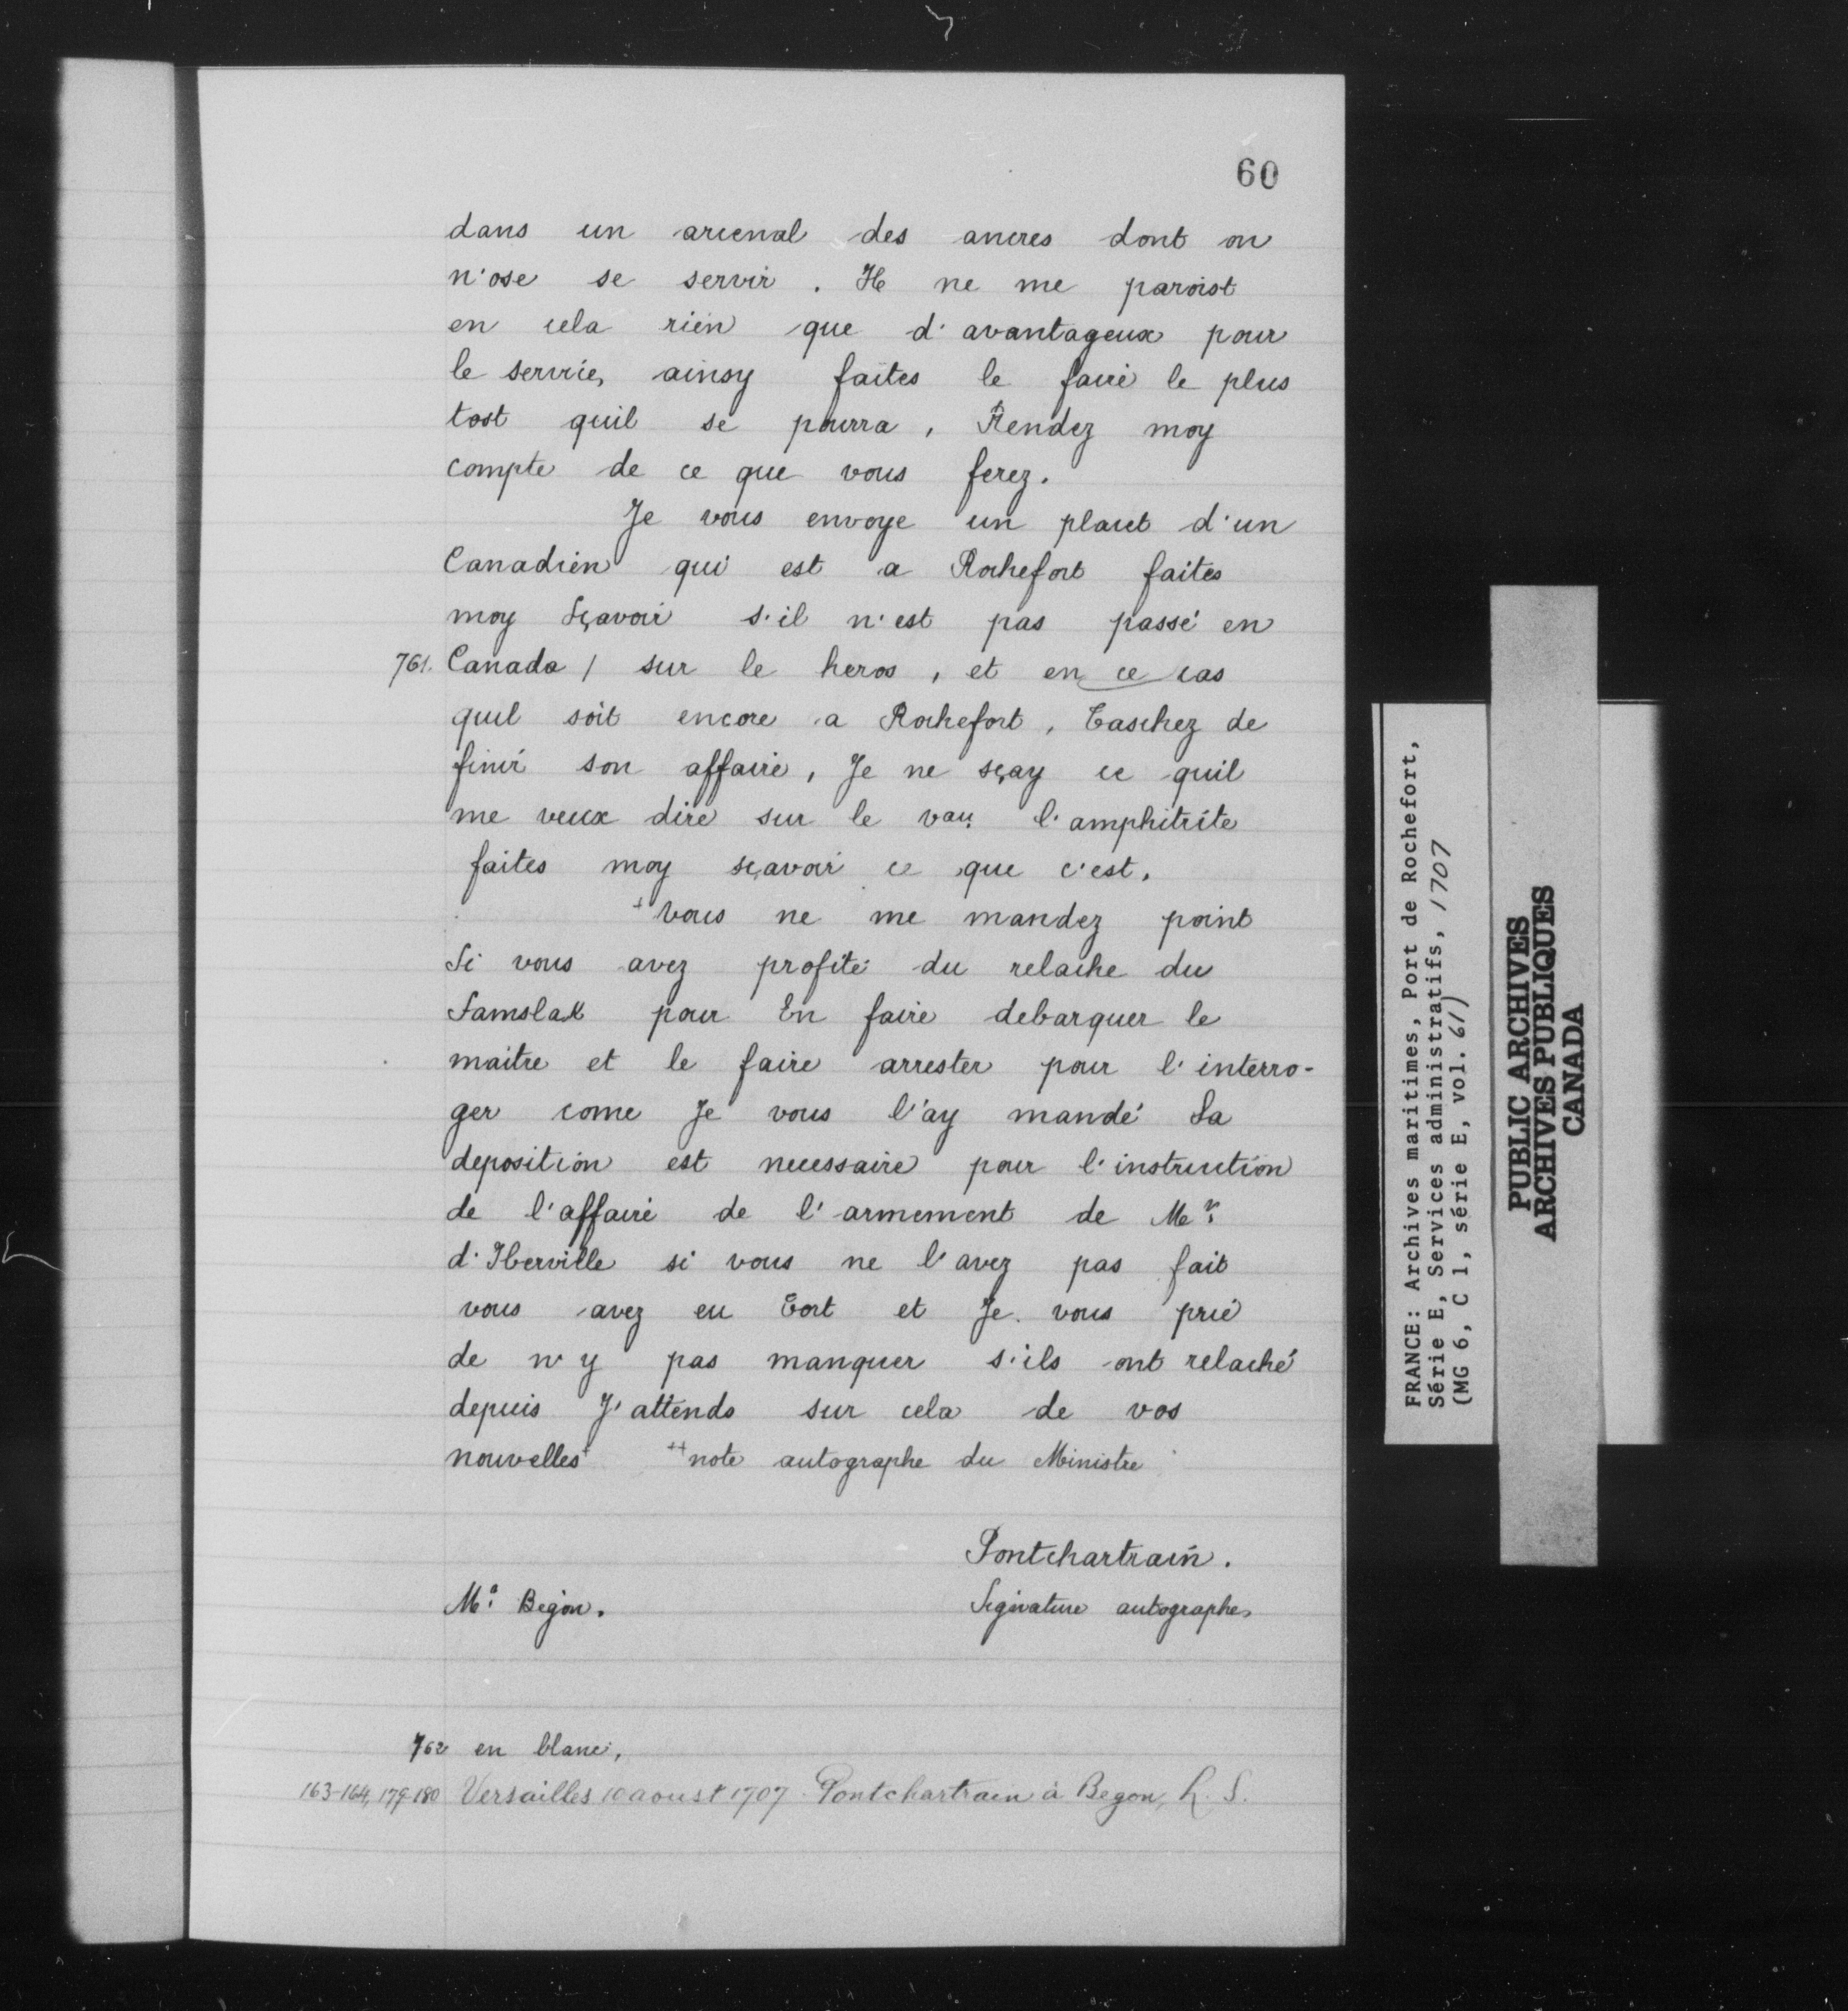 60
dans un arcenal des ancres dont on
n'ose se servir. Il ne me paroist
en cela rien que d'avantageux pour
le service, ainsy faites le faire le plus
tost quil se pourra, Rendez moy
compte de ce que vous ferez.
Je vous envoye un placet d'un
Canadien qui est a Rochefort faites
moy sçavoir s'il n'est pas passé en
761. Canada / sur le heros, et en ce cas
quil soit encore a Rochefort, Taschez de
finir son affaire, Je ne sçay ce quil
me veux dire sur le vau l'amphitrite
faites moy sçavoir ce que c'est.
+ vous ne me mandez point
Si vous avez profité du relache du
pour En faire debarquer le
maitre et le faire arrester pour l'interro-
ger come Je vous l'ay mandé Sa
deposition est necessaire pour l'instruction
de l'affaire de l'armement de Mr.
d'Iberville si vous ne l'avez pas fait
vous avez eu Tort et Je vous prie
de n'y pas manquer s'ils ont relaché
depuis J'attends sur cela de vos
nouvelles + ++ note autographe du Ministre
Pontchartrain.
Mr. Begon. Signature autographe
762 en blanc.
163-164, 179-180 Versailles 10 aoust 1707. Pontchartrain à Begon, L. S.
FRANCE: Archives maritimes, Port de Rochefort,
Série E, Services administratifs, 1707
(MG 6, C 1, série E, vol. 611)
PUBLIC ARCHIVES
ARCHIVES PUBLIQUES
CANADA